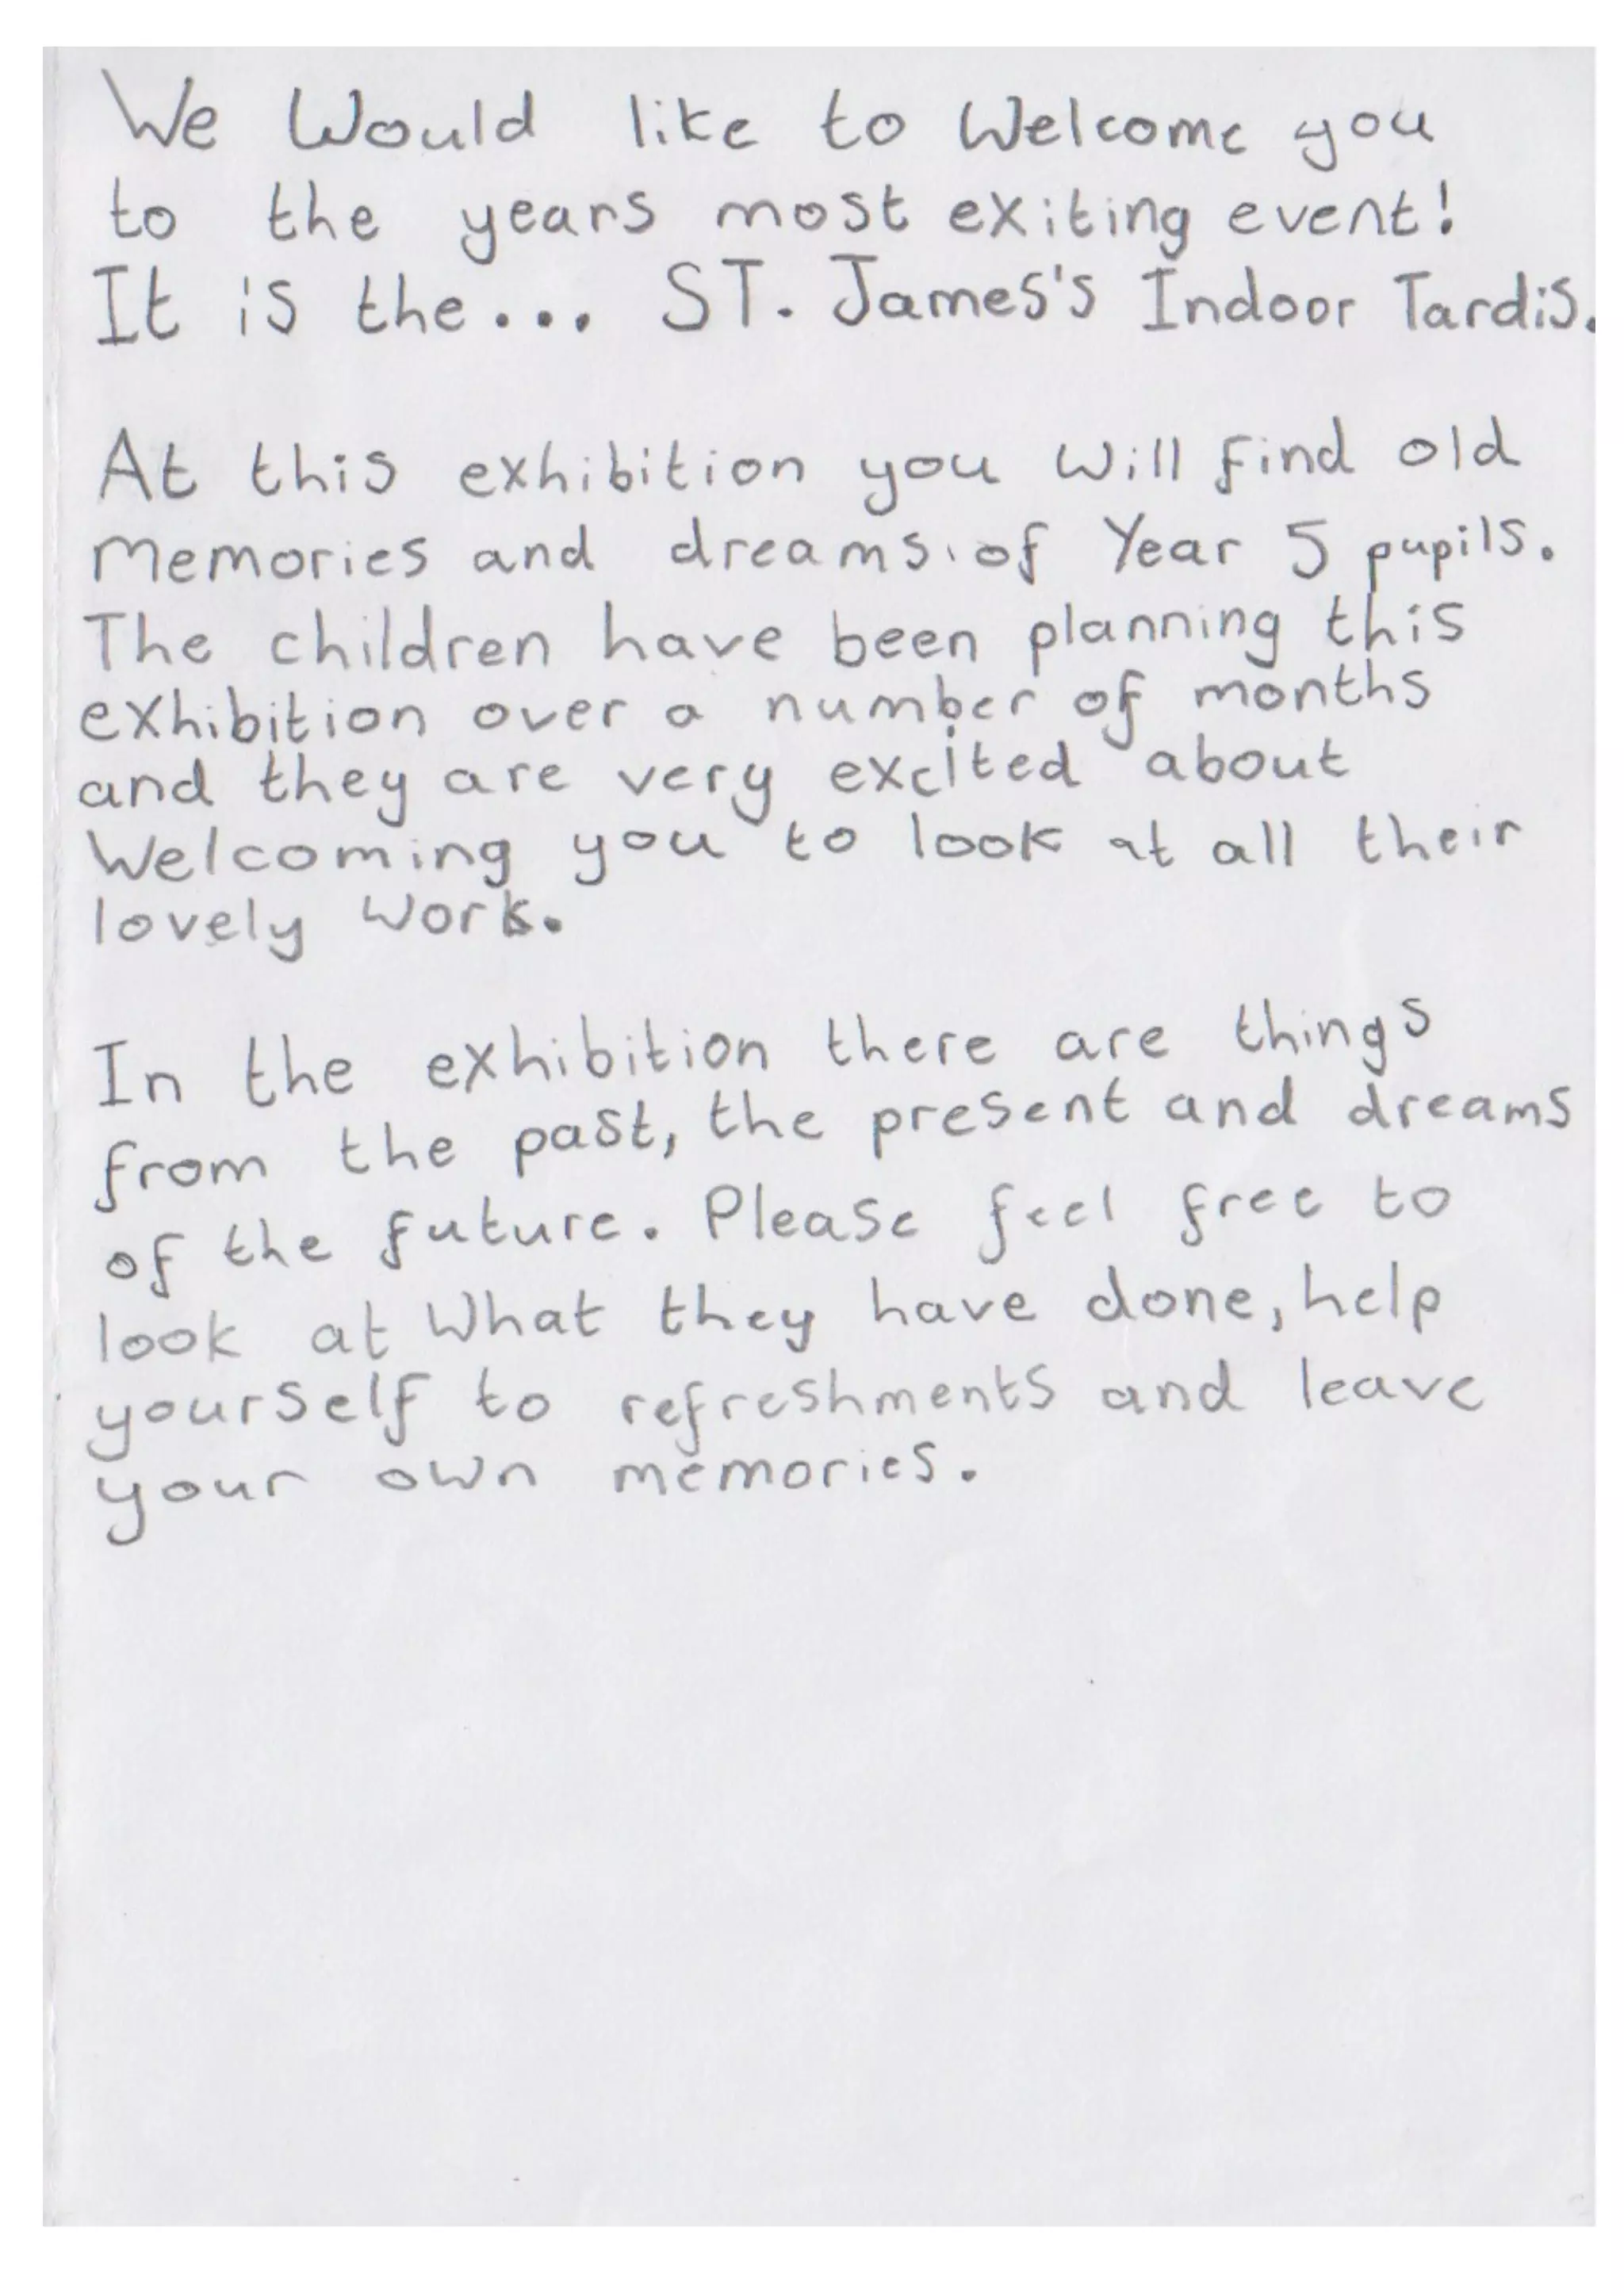 We Would like to Welcome you
to the years most exiting event!
It is the... ST. James's Indoor Tardis.
At this exhibition you will find old
Memories and dreams of Year 5 pupils.
The children have been planning this
exhibition over a number of months
and they are very excited about
Welcoming you to look at all their
lovely work.
In the exhibition there are things
from the past, the present and dreams
of the future. Please feel free to
look at What they have done, help
yourself to refreshments and leave
your own memories.